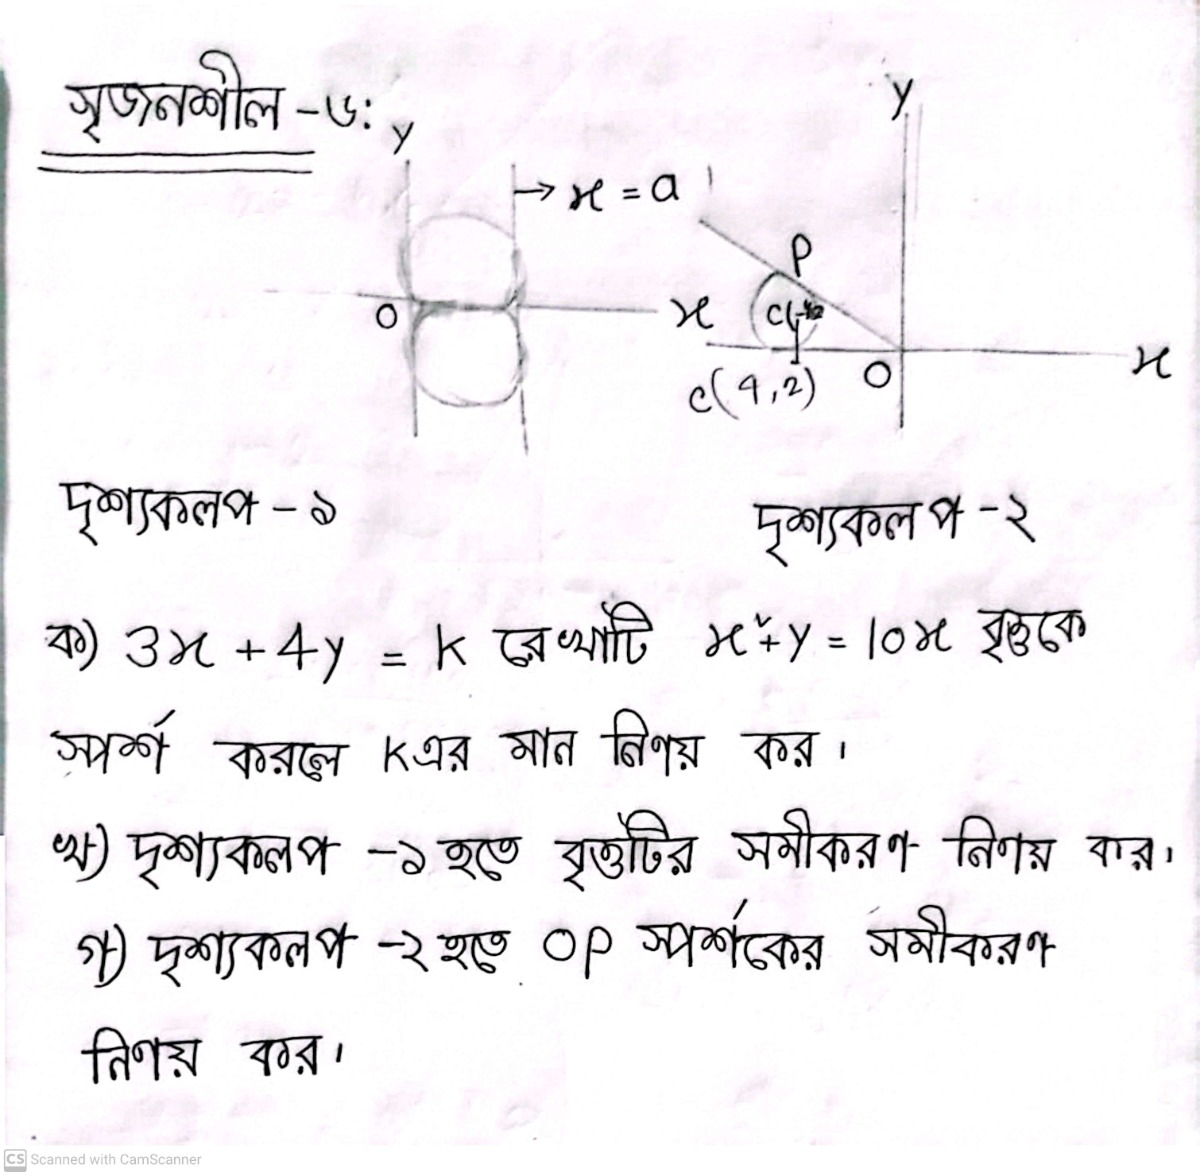 সৃজনশীল - ৬ঃ
y
→ x = a
O
x
y
P
C(-4,2
C(4,2)
O
x
দৃশ্যকলপ - ১
দৃশ্যকলপ - ২
ক) 3x + 4y = K রেখাটি x²+y = 10x বৃত্তকে
স্পর্শ করলে K এর মান নিণয় কর।
খ) দৃশ্যকলপ -১ হতে বৃত্তটির সমীকরণ নিণয় কর।
গ) দৃশ্যকলপ -২ হতে OP স্পর্শকের সমীকরণ
নিণয় কর।
CS Scanned with CamScanner